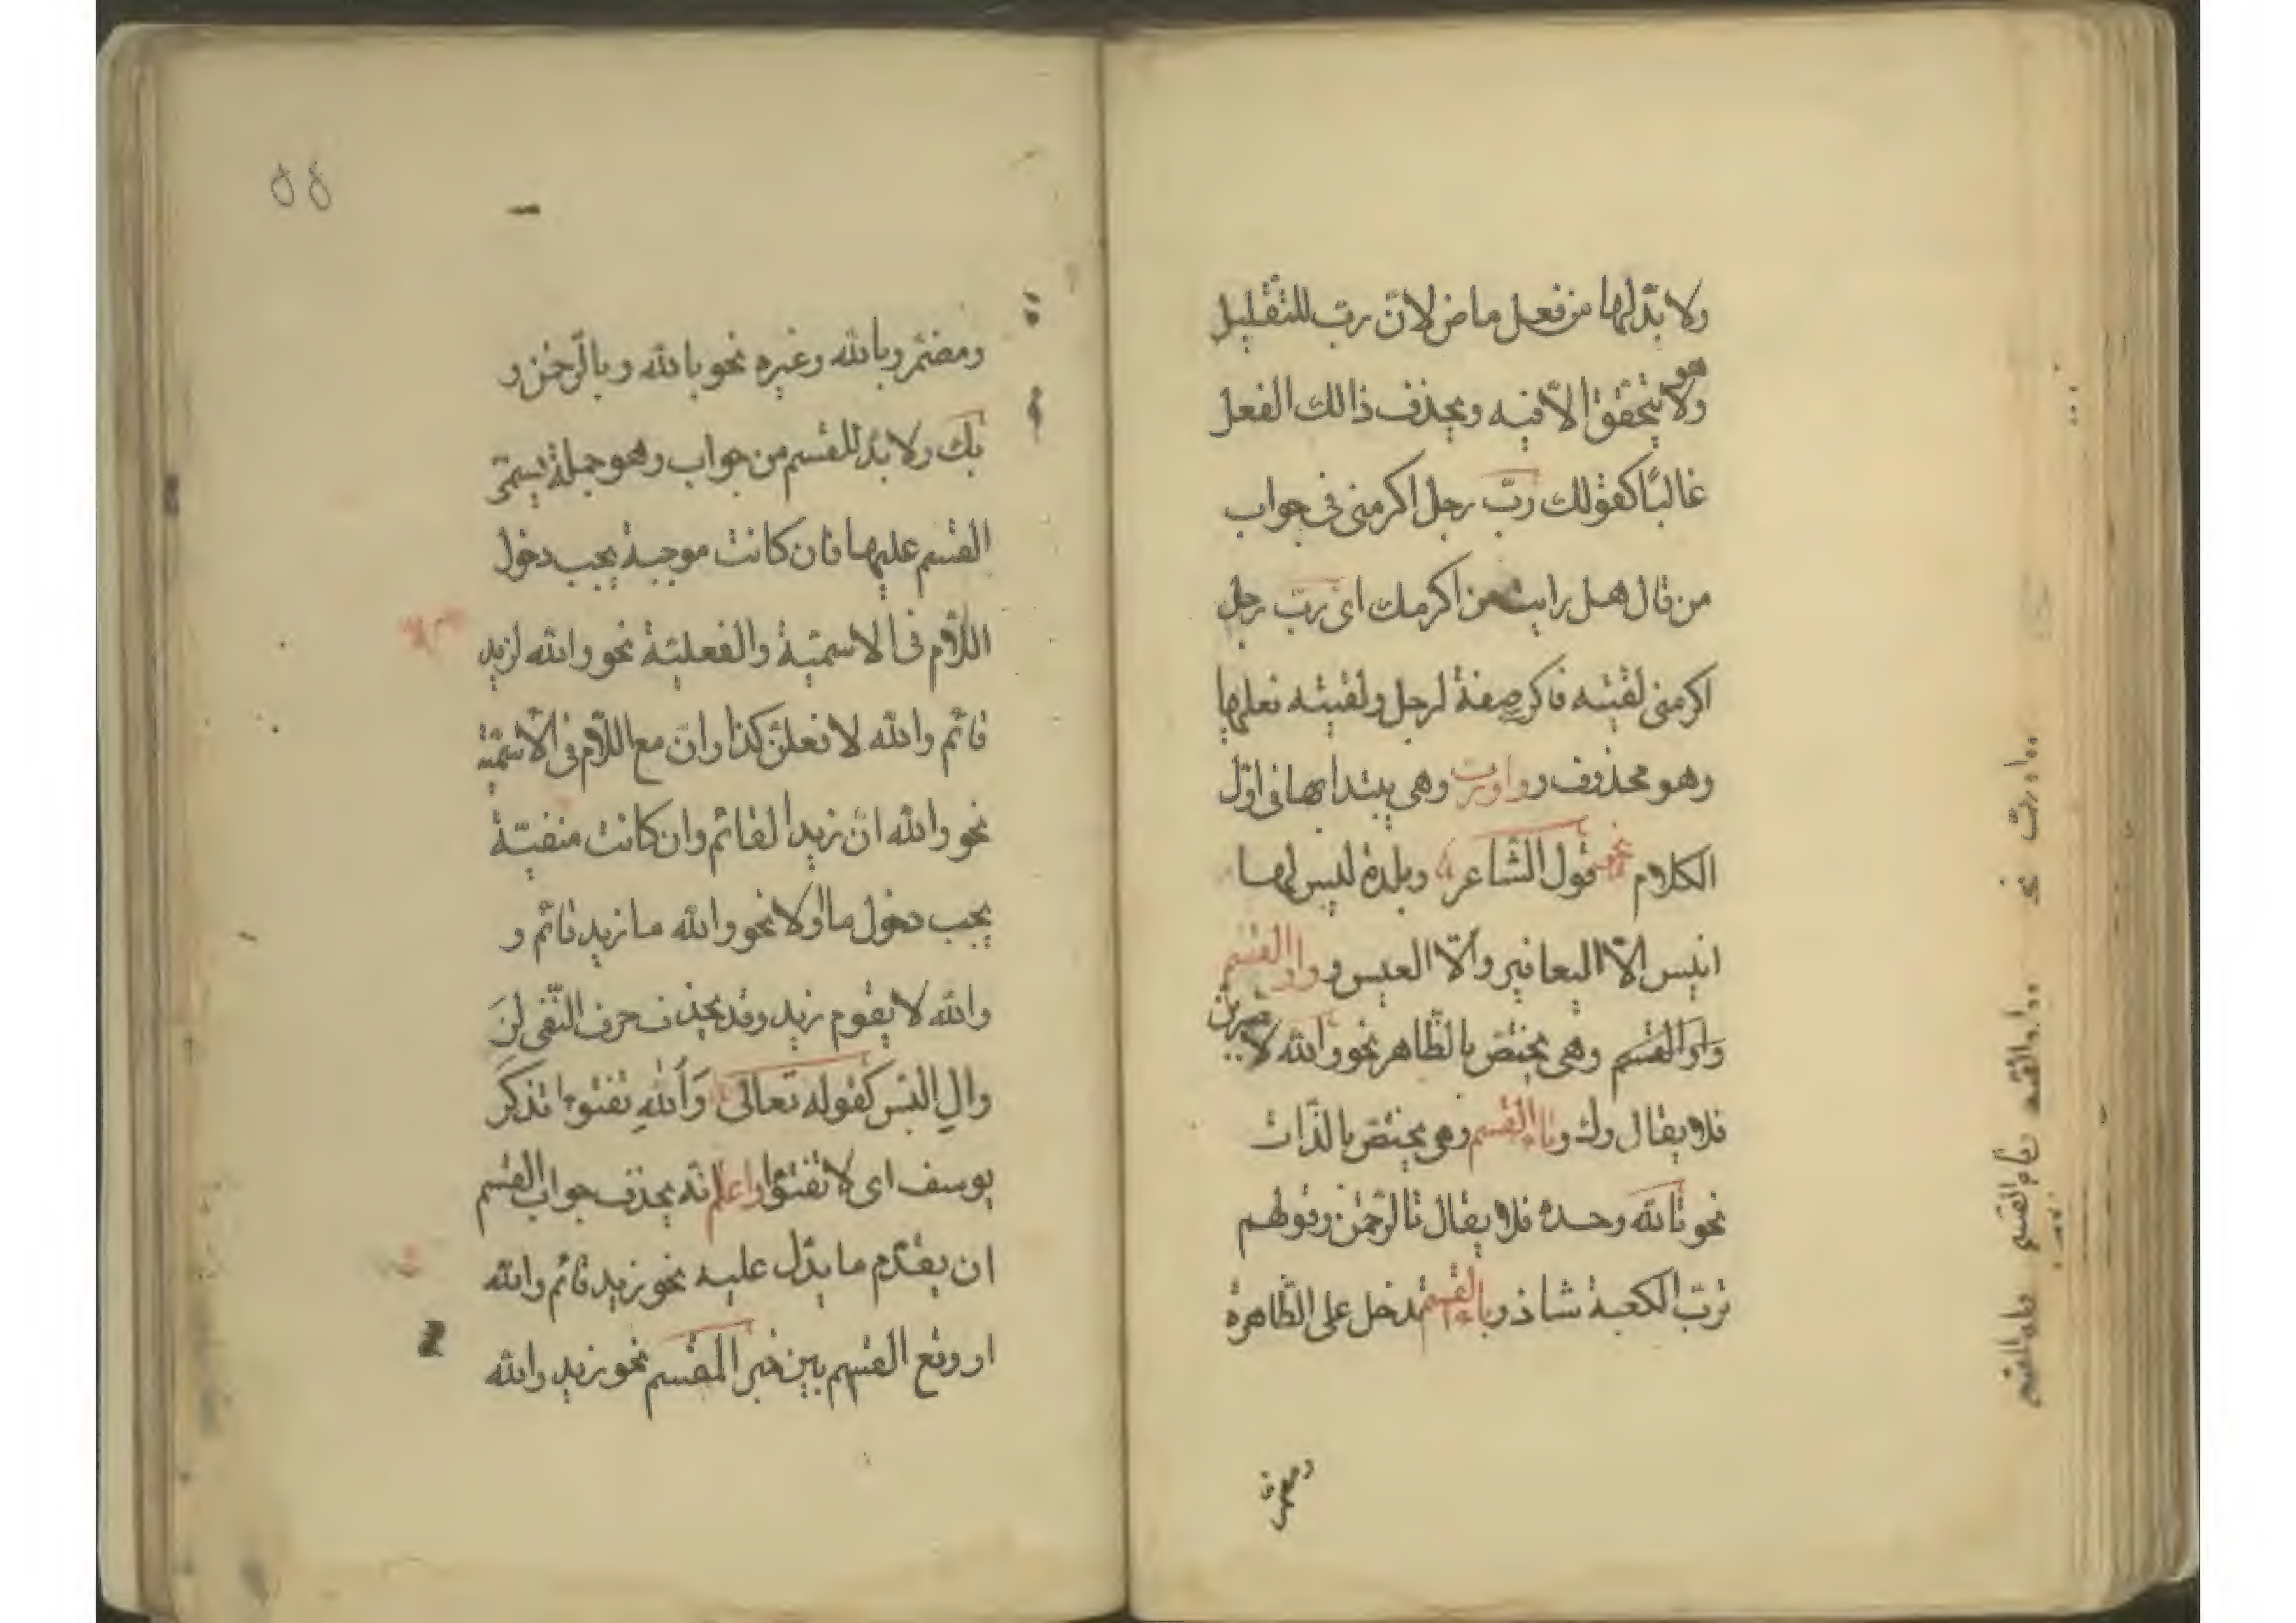 ولا بدّ لها من فعل ماض لانّ ربّ للتقليل
هو
ولا يتحقق الّا فيه ويحذف ذالك الفعل
غالبًا كقولك ربّ رجل اكرمنى فى جواب
من قال هل رايت من اكرمك اى ربّ رجل
اكرمنى لقيته فاكر صفة لرجل ولقيته فعلها
وهو محذوف وواو ربّ وهى يبتدا بها فى اوّل
الكلام نحو قول الشّاعر وبلدة ليس لها
انيس الّا اليعافير والّا العيس وواو القسم
واو القسم وهى يختص بالظّاهر نحو والله لا
فلا يقال وك وتاء القسم وهى يختص بالذّات
نحو تالله وحده فلا يقال تالرّحمٰن وقولهم
تربّ الكعبة شاذ وباء القسم تدخل على الظّاهرة
ومضمر
۵۵
ومضمر وبالله وغيره نحو بالله وبالرّحمٰن و
بك ولا بدّ للقسم من جواب وهو جملة يسمّى
القسم عليها فان كانت موجبة يجب دخول
اللّام فى الاسميّة والفعليّة نحو والله لزيد
قائم والله لافعلنّ كذا وانّ مع اللّام فى الاسميّة
نحو والله انّ زيدا لقائم وان كانت منفيّة
يجب دخول ما اولا نحو والله ما زيد قائم و
والله لا يقوم زيد وقد يحذف حرف النّفى لن
وال البس كقوله تعالى وَاللهِ تفتئوا تذكر
يوسف اى لا تفتئوا واعلم انّه يحذف جواب القسم
ان يقدّم ما يدّل عليه نحو زيد قائم والله
او وقع القسم بين خبر المقسم نحو زيد والله
واو ربّ نحو
واو القسم
تاء القسم
باء القسم